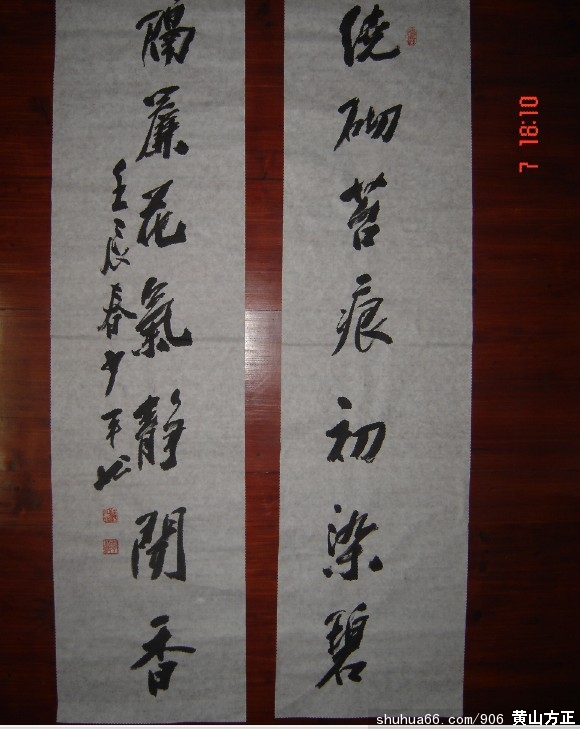 绕砌苔痕初染碧
隔簾花氣静聞香
壬辰春少平书
7 18:10
shuhua66.com/906 黄山方正